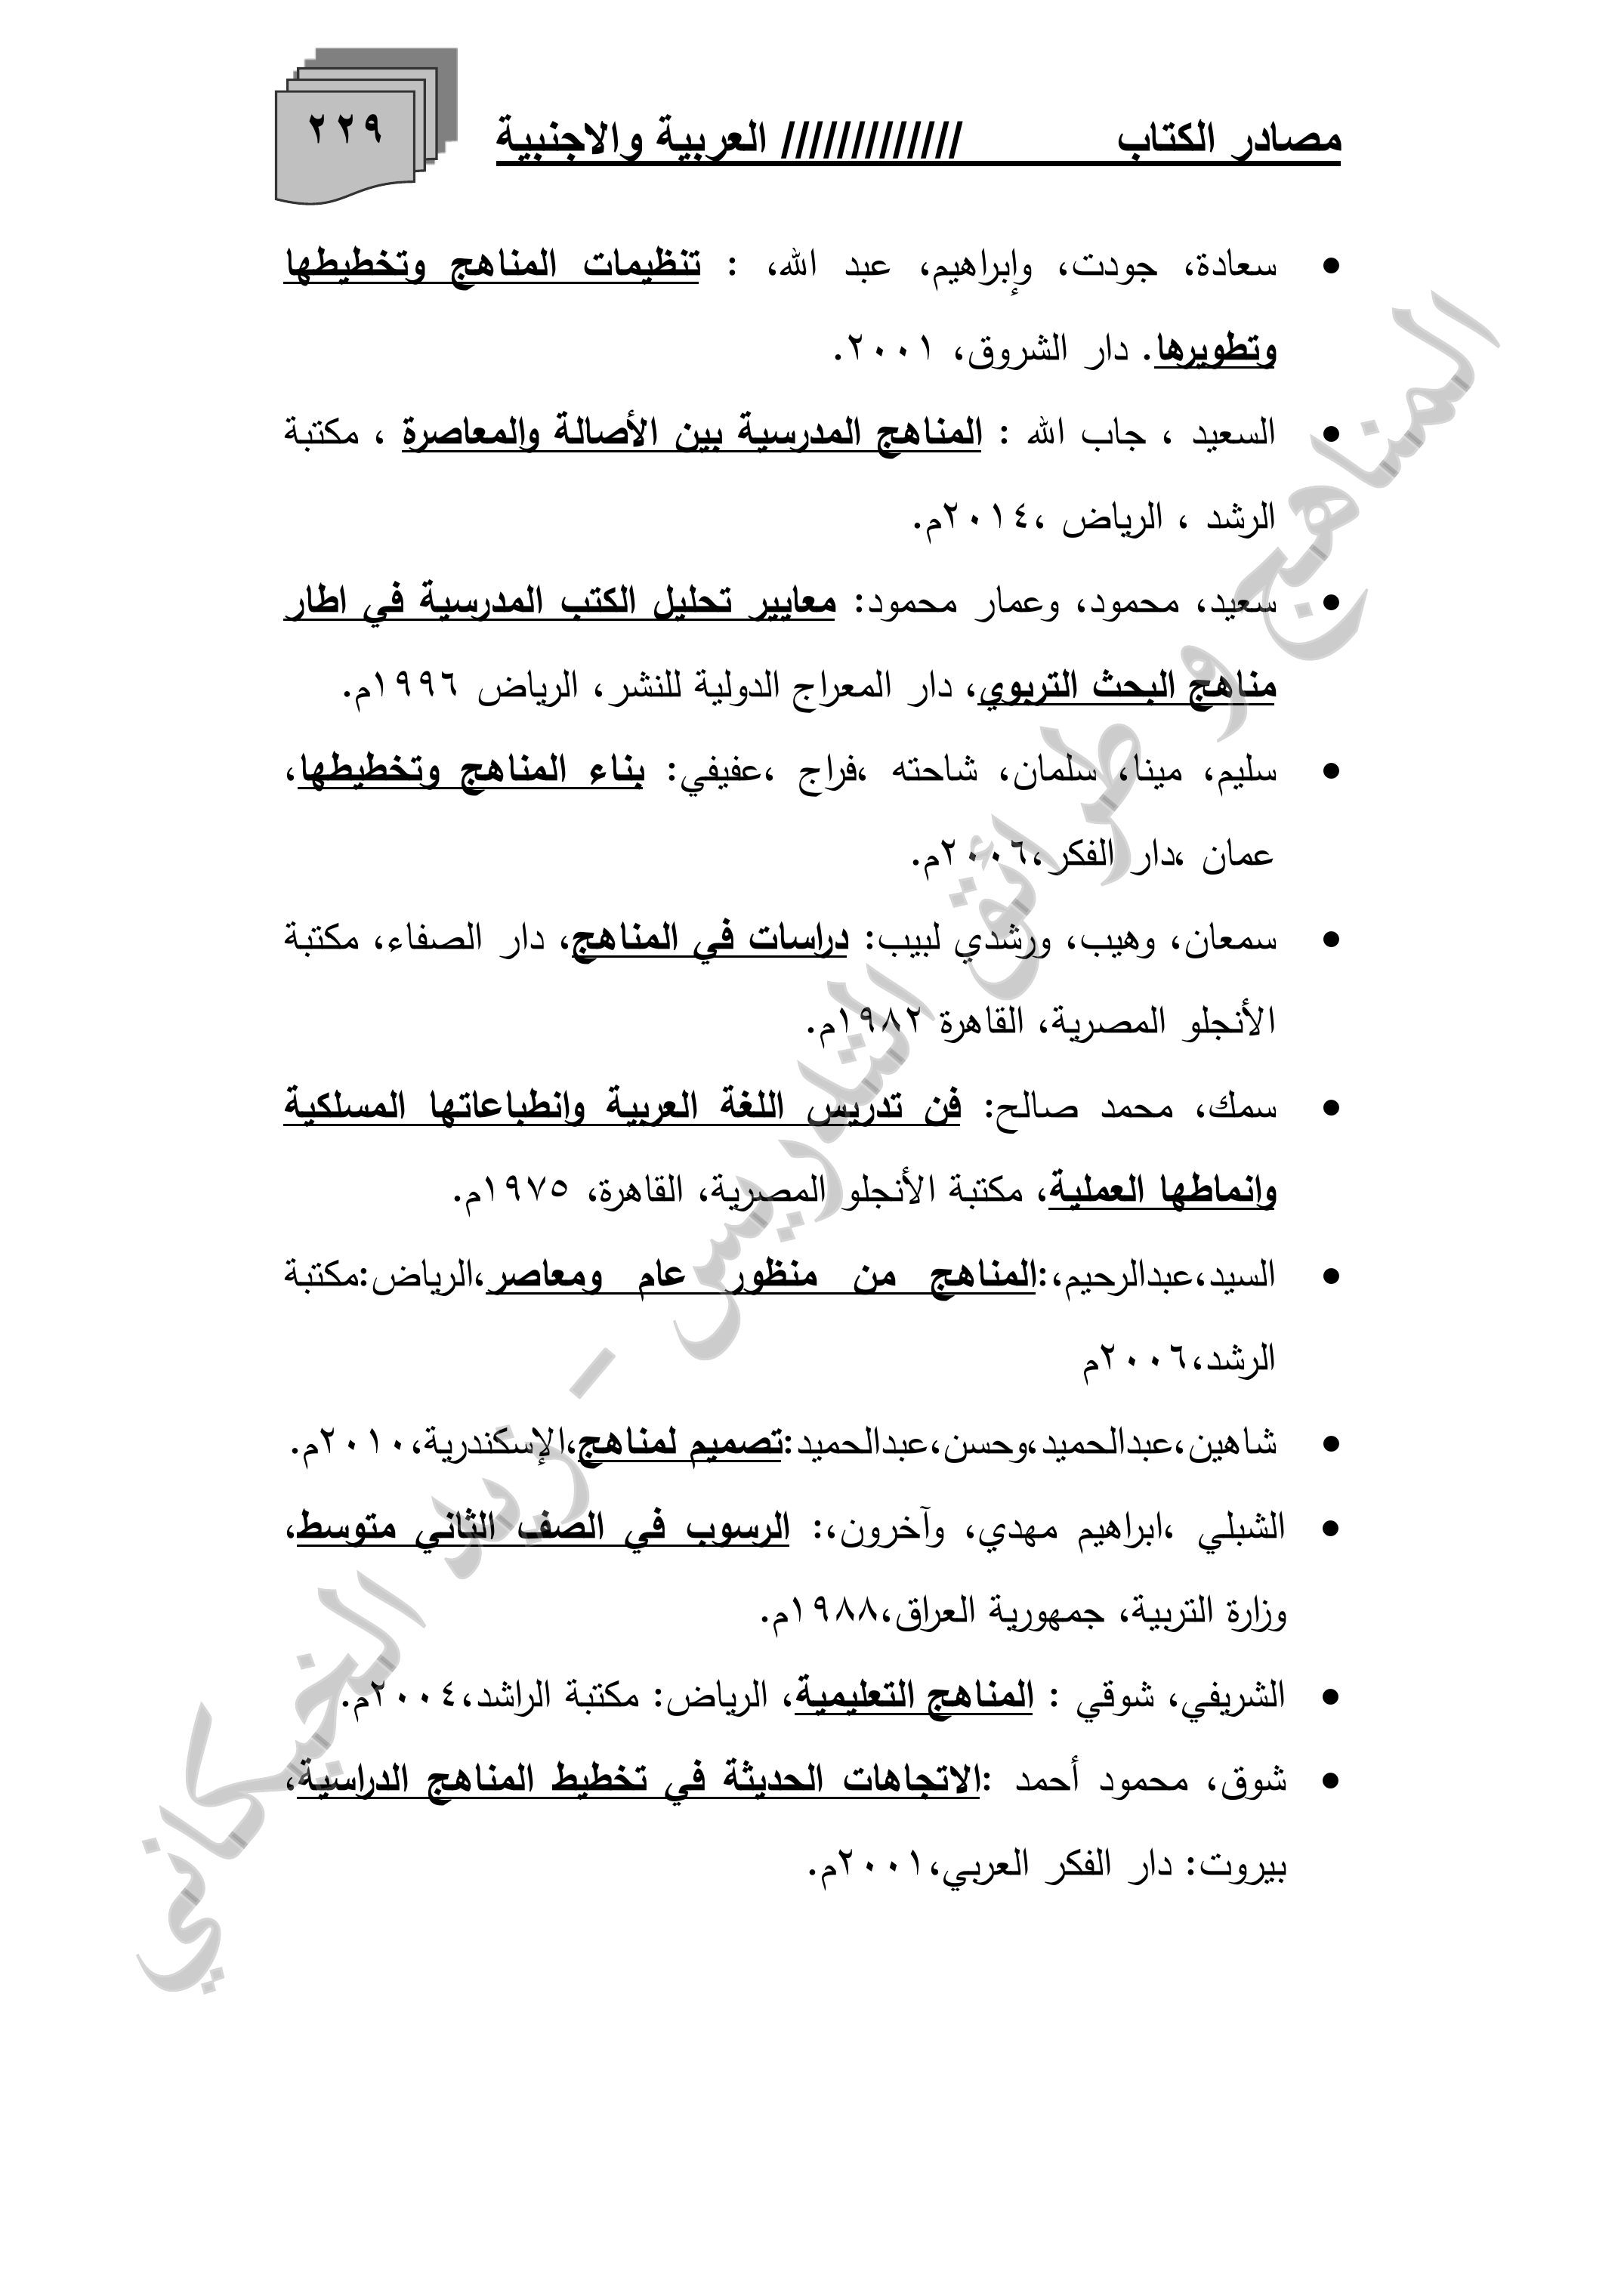 مصادر الكتاب ///////////// العربية والاجنبية
٢٢٩
• سعادة، جودت، وإبراهيم، عبد الله، : تنظيمات المناهج وتخطيطها
وتطويرها. دار الشروق، ٢٠٠١.
• السعيد ، جاب الله : المناهج المدرسية بين الأصالة والمعاصرة ، مكتبة
الرشد ، الرياض ،٢٠١٤م.
• سعيد، محمود، وعمار محمود: معايير تحليل الكتب المدرسية في اطار
مناهج البحث التربوي، دار المعراج الدولية للنشر، الرياض ١٩٩٦م.
• سليم، مينا، سلمان، شاحته ،فراج ،عفيفي: بناء المناهج وتخطيطها،
عمان ،دار الفكر،٢٠٠٦م.
• سمعان، وهيب، ورشدي لبيب: دراسات في المناهج، دار الصفاء، مكتبة
الأنجلو المصرية، القاهرة ١٩٨٢م.
• سمك، محمد صالح: فن تدريس اللغة العربية وانطباعاتها المسلكية
وانماطها العملية، مكتبة الأنجلو المصرية، القاهرة، ١٩٧٥م.
• السيد،عبدالرحيم،:المناهج من منظور عام ومعاصر،الرياض:مكتبة
الرشد،٢٠٠٦م
• شاهين،عبدالحميد،وحسن،عبدالحميد:تصميم لمناهج،الإسكندرية،٢٠١٠م.
• الشبلي ،ابراهيم مهدي، وآخرون،: الرسوب في الصف الثاني متوسط،
وزارة التربية، جمهورية العراق،١٩٨٨م.
• الشريفي، شوقي : المناهج التعليمية، الرياض: مكتبة الراشد،٢٠٠٤م.
• شوق، محمود أحمد :الاتجاهات الحديثة في تخطيط المناهج الدراسية،
بيروت: دار الفكر العربي،٢٠٠١م.
المناهج و طرائق التدريس - زيد الخيكاني